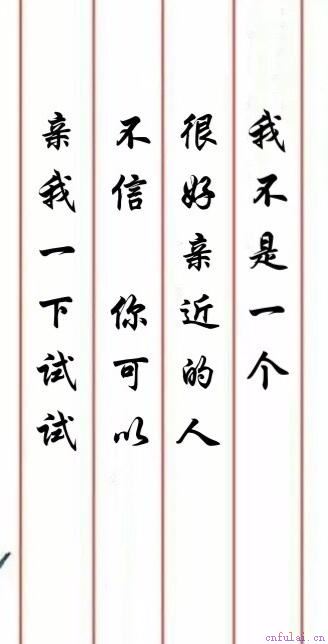 我不是一个
很好亲近的人
不信 你可以
亲我一下试试
cnfulai.cn